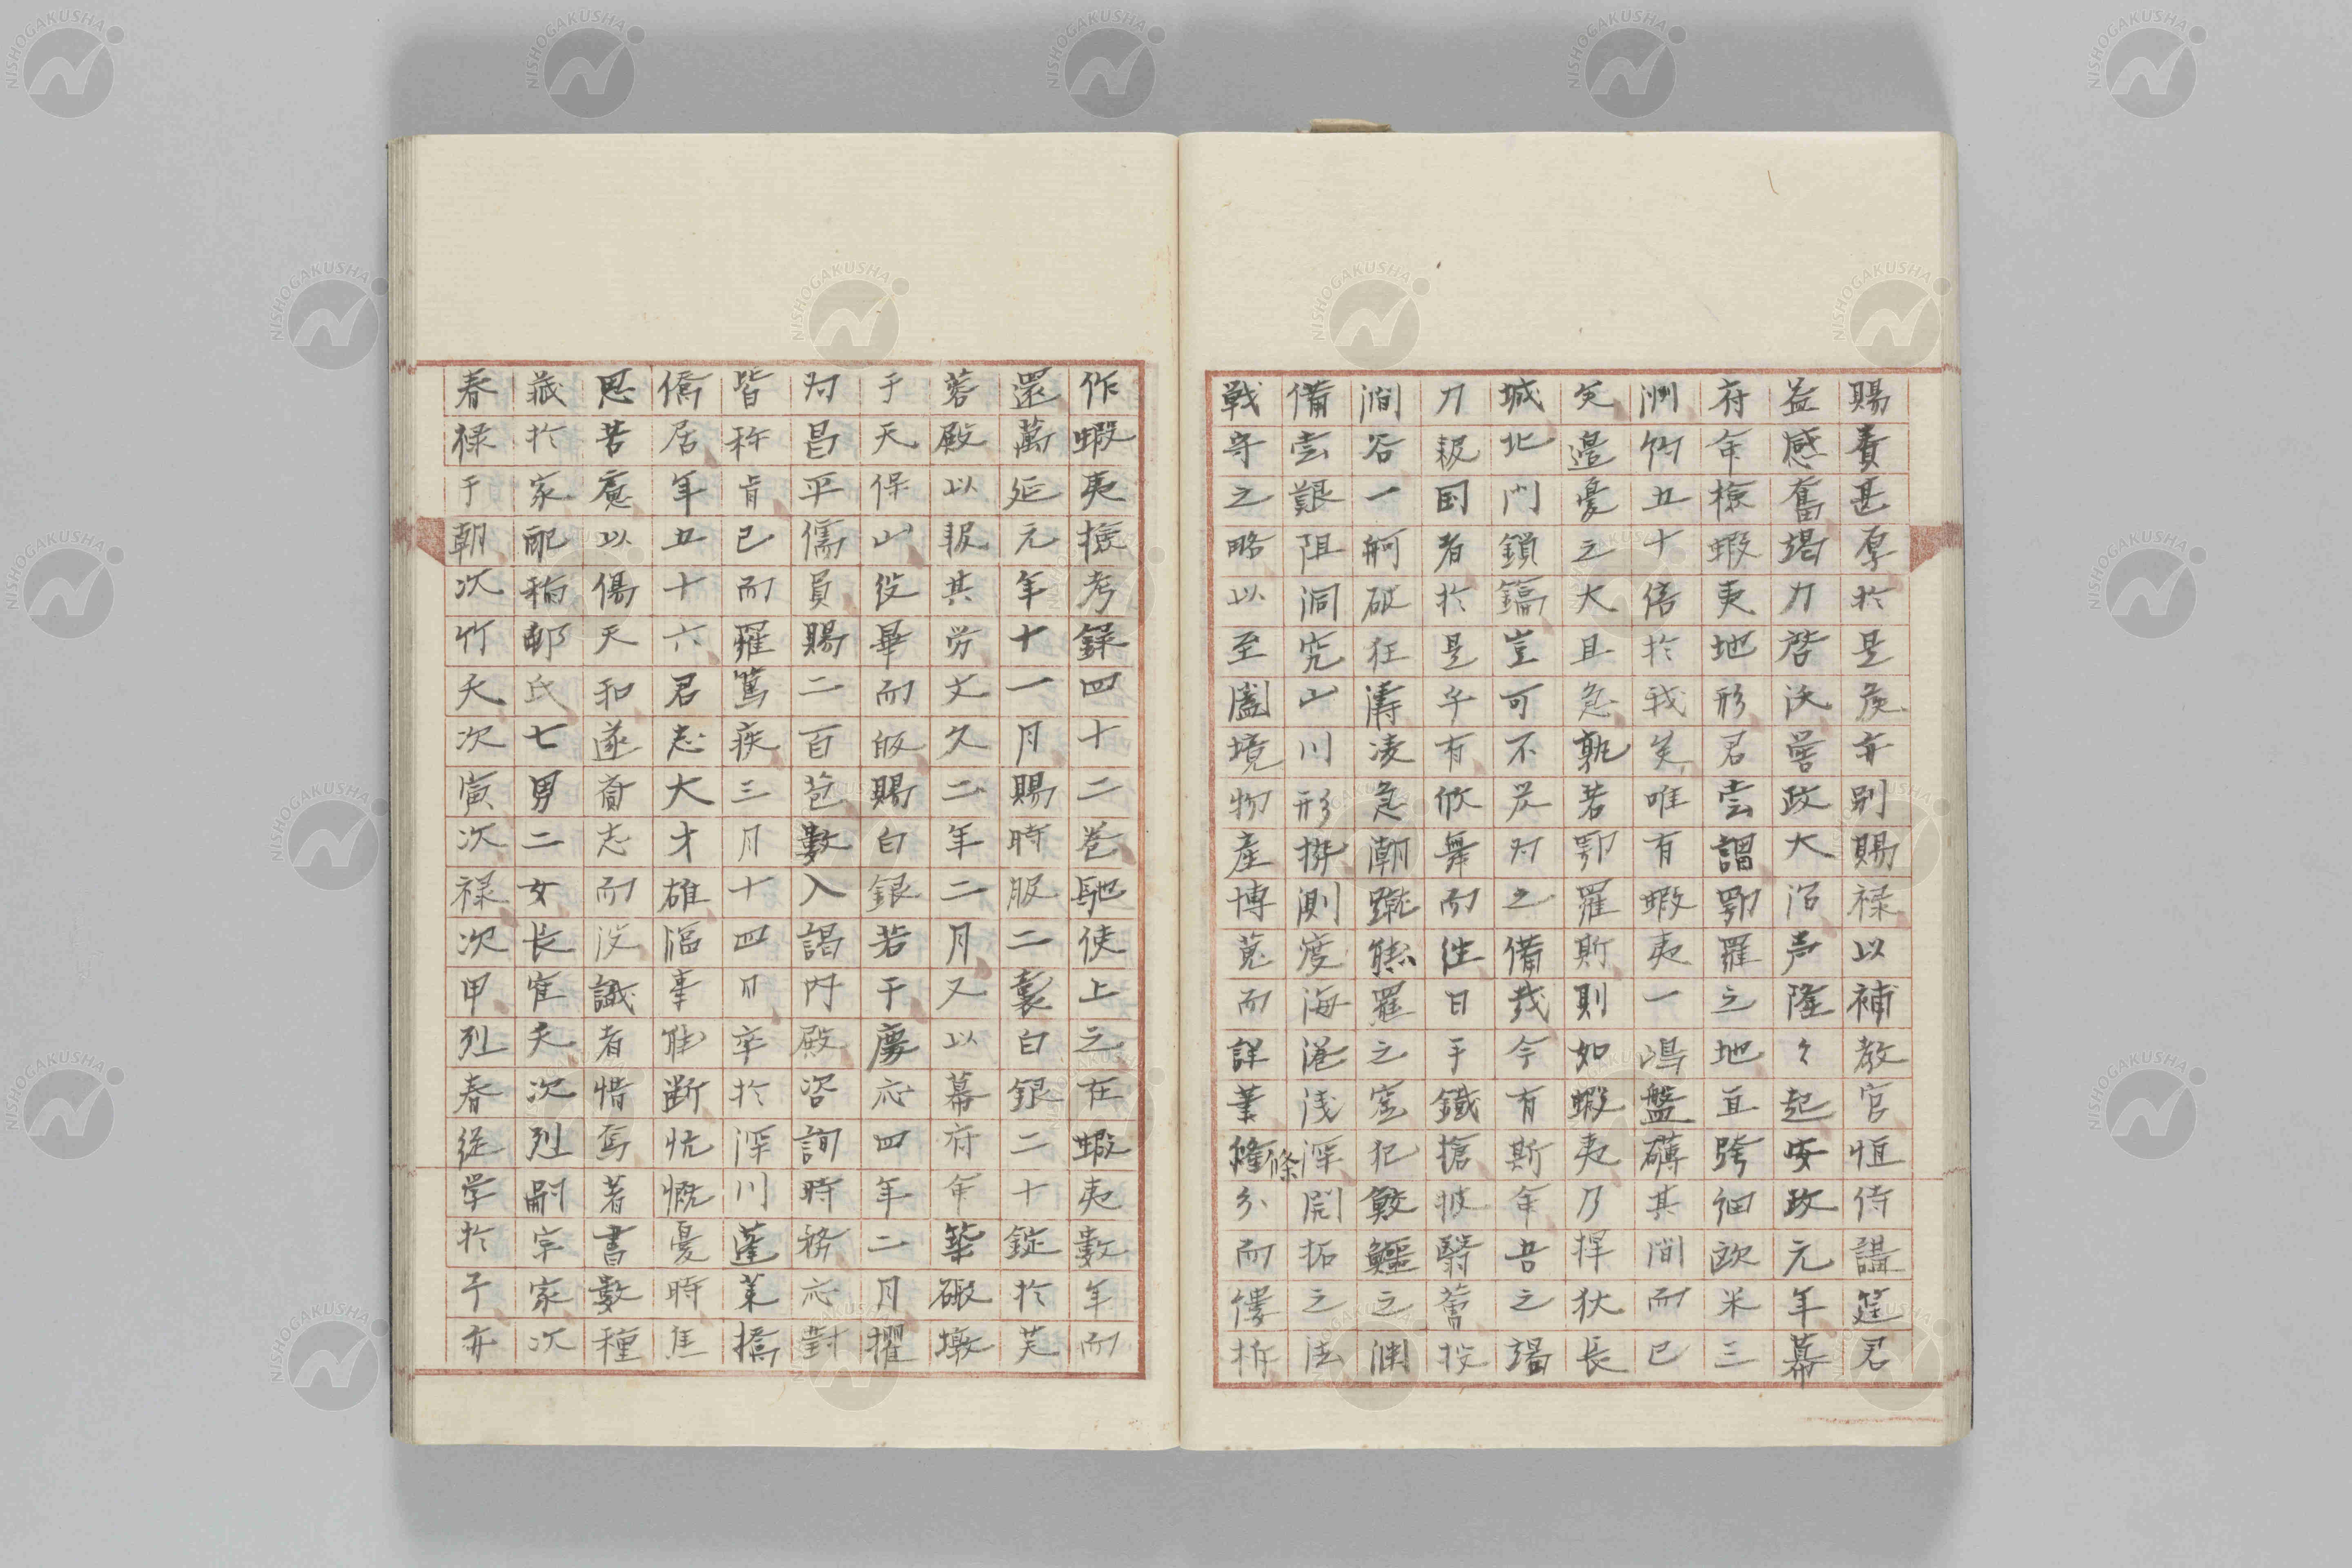 賜賚甚厚於是矦亦别賜禄以補教官恒侍講筵君
益感奮竭力啓沃嘗政大治声隆々起安政元年幕
府命檢蝦夷地形君嘗謂鄂羅之地亘跨細欧米三
洲約五十倍於我矣唯有蝦夷一嶋盤礴其間而已
矣邉憂之大且急孰若鄂羅斯則如蝦夷乃捍狄長
城北門鎖鑰豈可不炭对之備哉今有斯命吾之竭
力報国者於是乎有欣舞而往日手鐵搶披翳薈投
澗谷一舸破狂濤凌急潮蹴熊羆之窟犯鮫鰐之淵
備嘗艱阻洞究山川形摸測度海港浅深開拓之法
戦守之略以至闔境物産博蒐而詳葦條分而僂拆
作蝦夷撿考録四十二巻馳使上之在蝦夷數年而
還萬延元年十一月賜時服二襲白銀二十錠於芙
蓉殿以報其労文久二年二月又以幕府命築砲墩
于天保山役畢而皈賜白銀若干慶応四年二月擢
为昌平儒員賜二百苞數入謁内殿咨詢時務応對
皆称肯已而羅篤疾三月十四日卒於深川蓬莱橋
僑居年五十六君志大才雄酒㳟断忼慨憂時焦
思苦慮以傷天和遂賫志而没識者惜焉著書數種
藏於家配稲邨氏七男二女長寉夫次烈嗣宗家次
春禄于朝次竹天次寅次禄次甲烈春従学於予亦